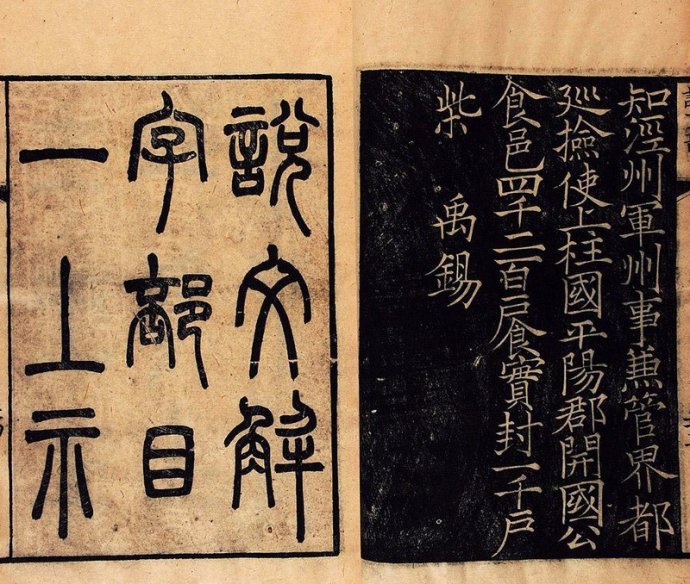 知涇州軍州事蕉管界都
廵撿使上柱國平陽郡開國公
食邑四千二百戶食實封一千戶
柴禹錫
說文解
字部目
一上示